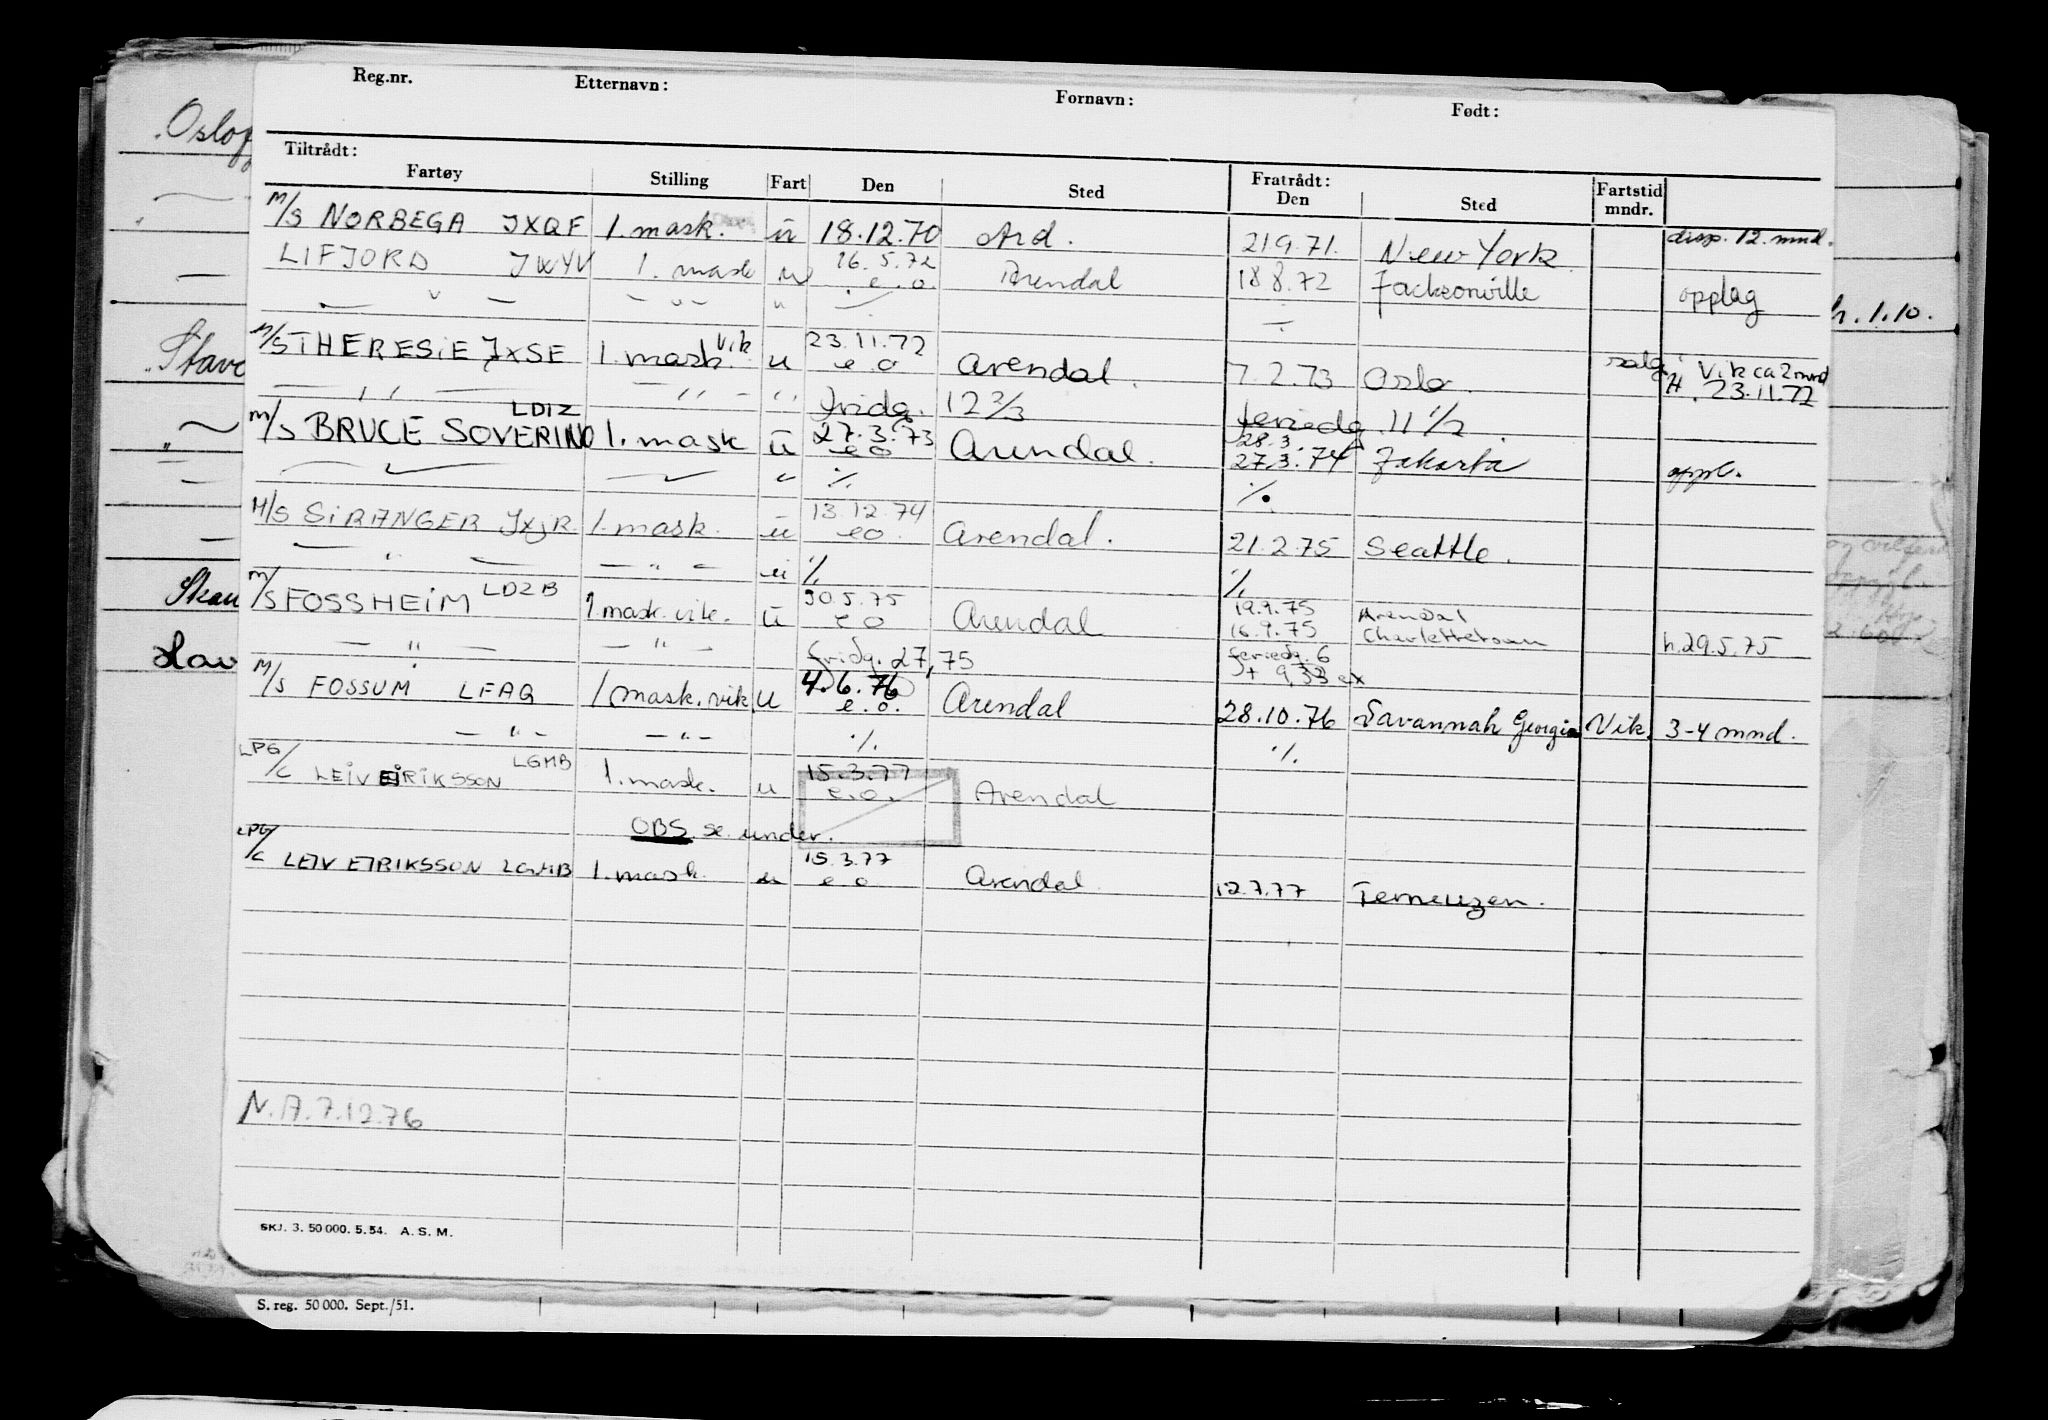 Reg.nr. Etternavn: Fornavn: Født:
Tiltrådt: Fratrådt:
Fartøy Stilling Fart Den Sted Den Sted Fartstid mndr.
M/S NORBEGA JXQF 1. mask. ū 18.12.70 Ard. 21.9.71. New York disp. 12. mnd.
LIFJORD JWYV 1. mask u 16.5.72 e.o. Arendal 18.8.72 Jacksonville opplag
— " — — " — " ·/.
M/S THERESiE JXSE 1. mask. vik u 23.11.72 e o Arendal. 7.2.73 Oslo. salg. Vik ca 2 mnd
H. 23.11.72
— " — — " — " fridg. 12 2/3 feriedg. 11 1/2.
M/S BRUCE SOVERINO LDIZ 1. mask ū 27.3.73 e o Arendal. 28.3. 27.3.74 Jakarta oppl.
·/. ·/.
M/S SiRANGER JXJR 1. mask. ū 13.12.74 eo. Arendal. 21.2.75 Seattle.
— " — — " — ·/. ·/.
M/S FOSSHEiM LDZB 1 mask. vik. ū 30.5.75 e o Arendal 19.9.75 Arendal
16.9.75 Charlettetown h. 29.5.75
— " — — " — fridg. 27,75 feriedg. 6
+ 9,33 ex
M/S FOSSUM LFAQ 1 mask. vik. u 4.6.76 e.o. Arendal 28.10.76 Savannah Georgia Vik. 3-4 mnd.
— " — — " — ·/. ·/.
LPG/C LEIV EiRIKSSON LGMB 1. mask. u 15.3.77 e.o. Arendal
OBS. se. under.
LPG/C LEIV EIRIKSSON LGMB 1. mask. u 15.3.77 e o Arendal. 12.7.77 Terneuzen.
N.A. 7.12.76
SKJ. 3. 50 000. 5. 54. A. S. M.
S. reg. 50 000. Sept./51.
h. 1.10.